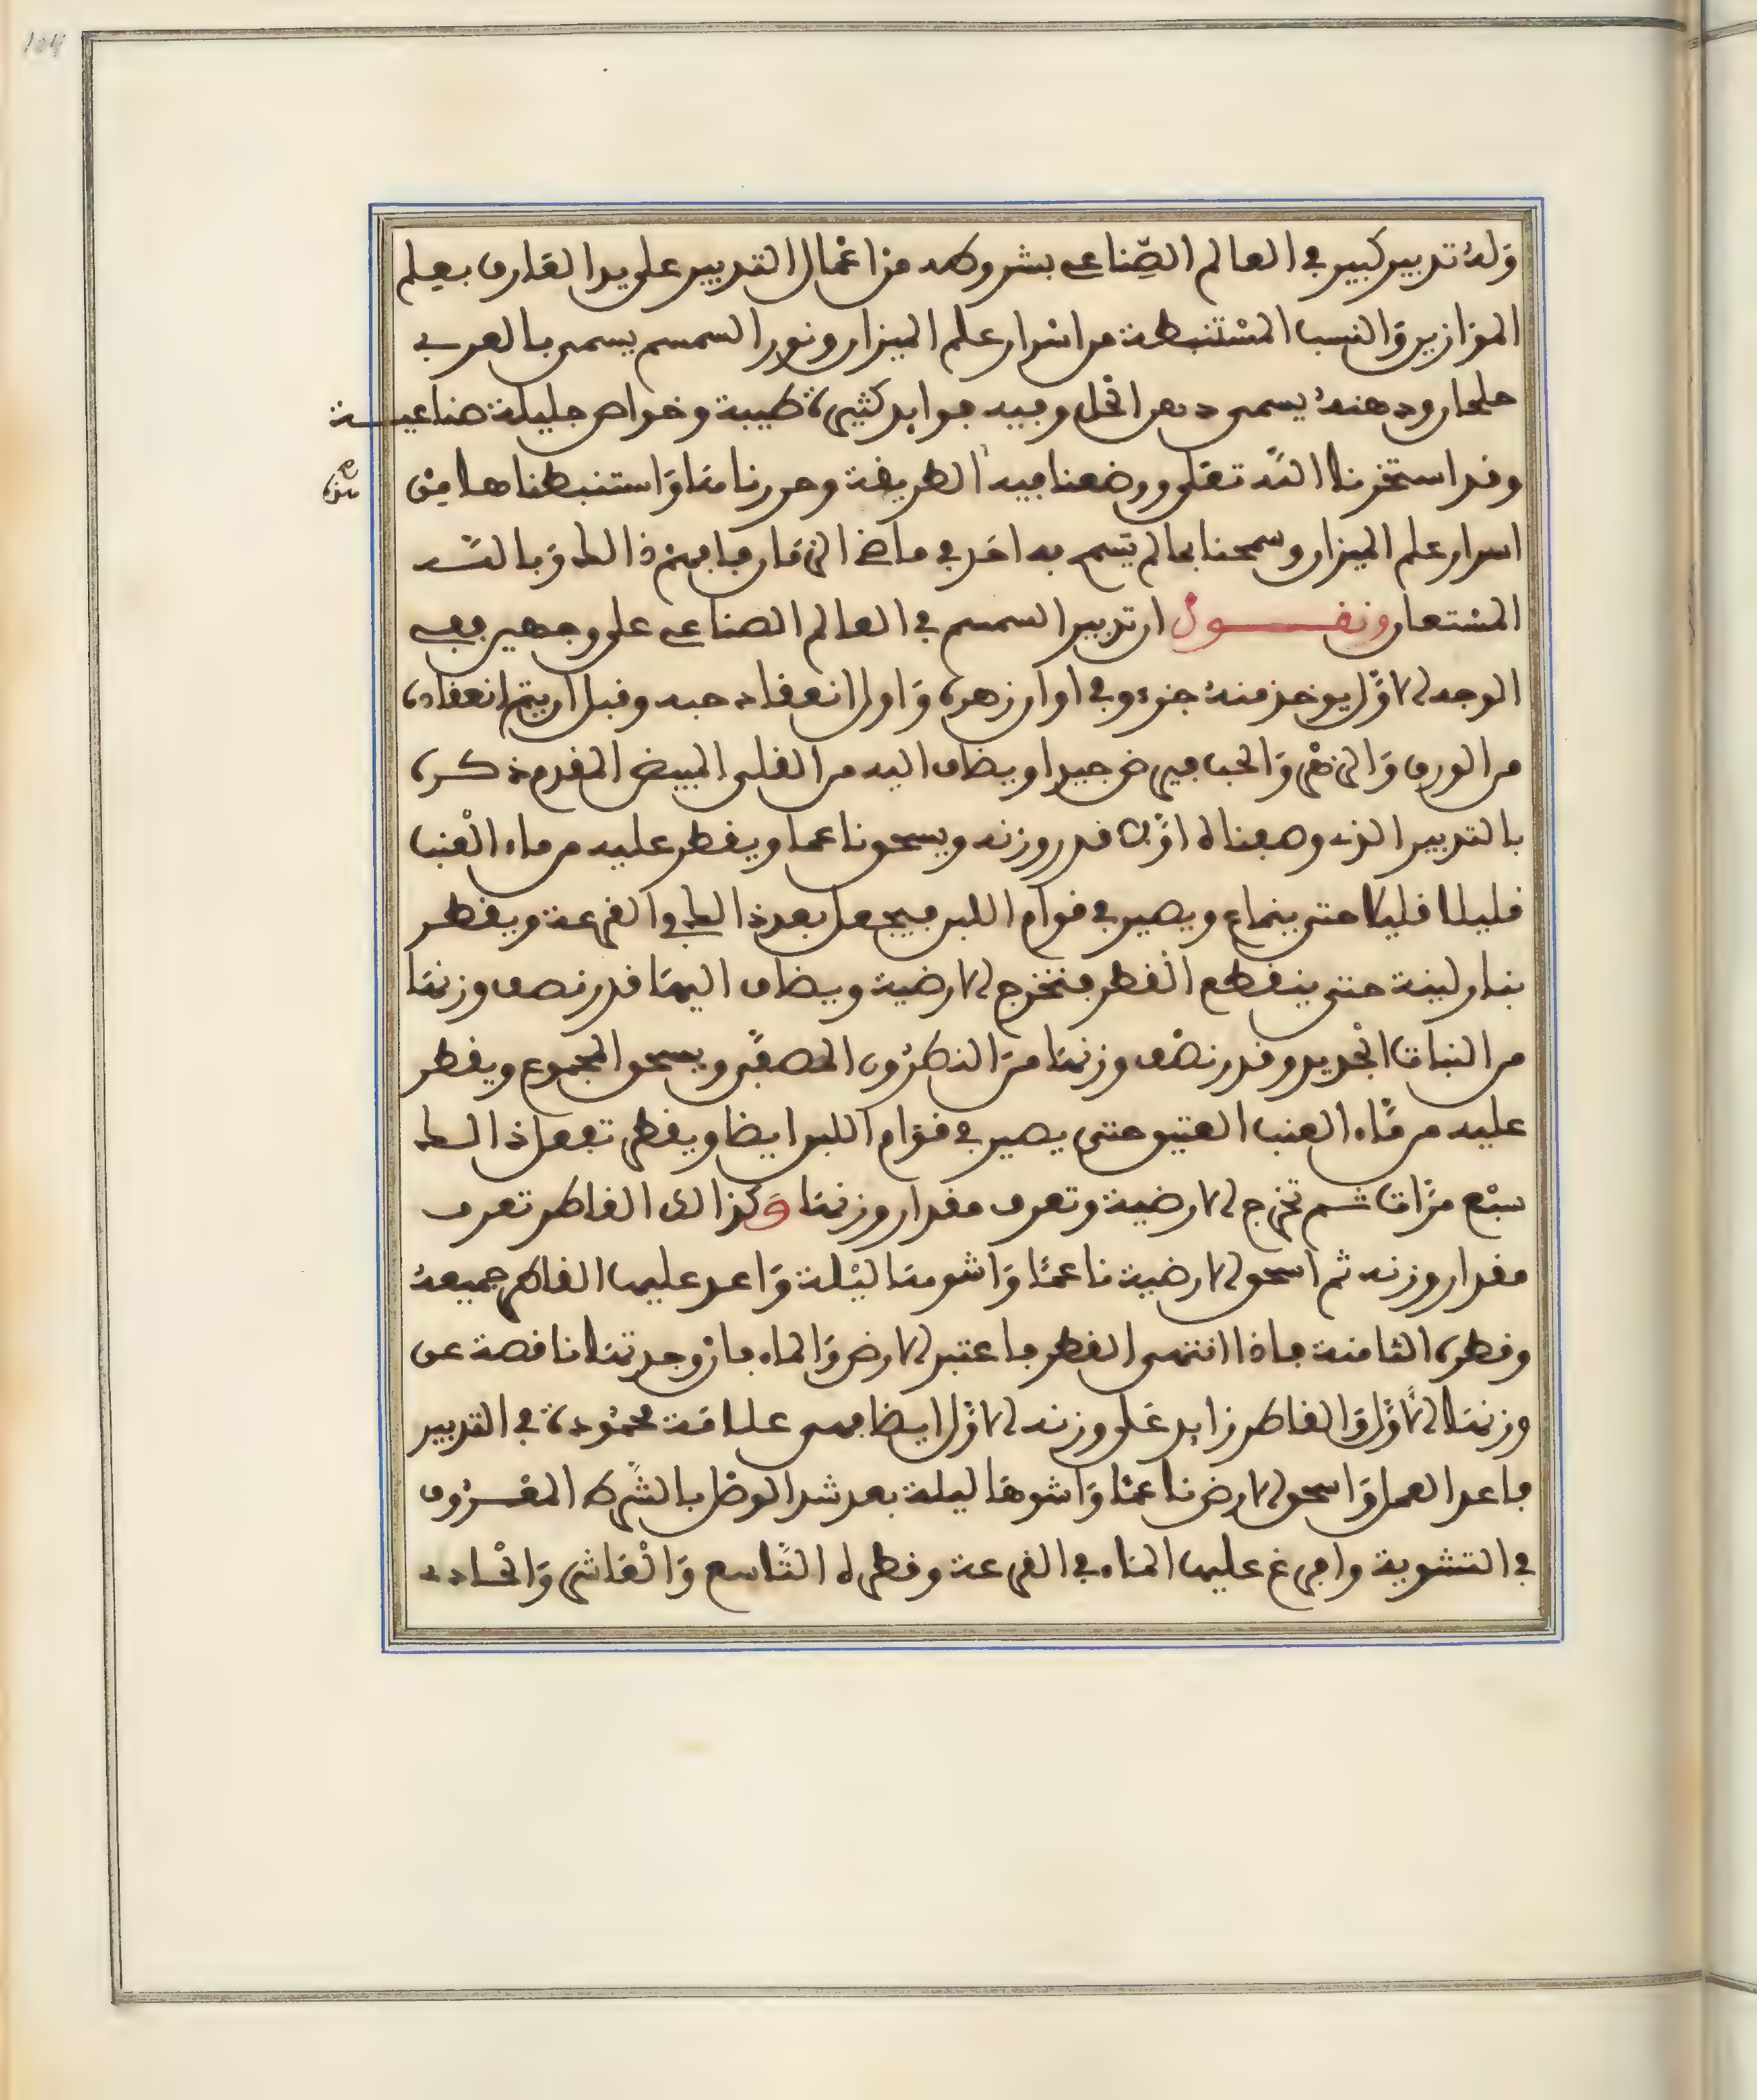 وَلهُ تدبير كبير في العالم الصِّناعي بشروطه من اعْمال التدبير على يد العَارف بعِلم
الموَازين وَالنسب المسْتنبطة من اسْرار علم الميزان ونور السمسم يسمى بالعربي
جلجلان ودهنهُ يسمى دهن الخل وفيه فوايد كثيرة طبية وخواص جليلة صناعيـــة
وقد استخرنا اللهَ تعَلى ووضعنا فيه الطريقة وحررناهَا وَاستنبطناها مِنْ
اسرار علم الميزان وسمحنا بما لم يَسمح به احَد في ماضي الزمَان فافهم ذالك وَبالله
المسْتعان ونقـــول ان تدبير السمسم في العالم الصناعي على وجهين ففي
الوجه الاوَّل يوخذ منهُ جزء وفي اوان زهره وَاول انعقاد حبه وقبل ان يتم انعقاده
من الورق وَالزهْر وَالحب فيرض جيدا ويضاف اليه من القلي المبيض المقدم ذكره
بالتدبير الذي وصفناه اوَّلا قدر وزنه ويسحق ناعما ويقطر عليه من ماء العْنب
قليلا قليلا حتى ينماع ويصير في قوام اللبن فيجعل بعد ذالك في القرعة ويقطر
بنار لينة حتى ينقطع القطر فتخرج الارضية ويضاف اليهَا قدر نصف وزنهَا
من النبات الجْديد وقدر نصْف وزنهَا منَ النطرُون المصفَّى ويسحق المجموع ويقطر
عليه من مَّاء العنب العتيق حتى يصير في قوَام اللبن ايضا ويقطر تفعل ذالك
سبْع مرَّات ثم تخرج الارضية وتعرف مقدار وزنهَا وَكذالك القاطر تعرف
مقدار وزنه ثم اسحق الارضية ناعمًا وَاشوهَا ليْلة وَاعد عليها القاطر جميعهُ
وقطره الثامنة فاذا انتهى القطر فاعتبر الارض وَالماء فانْ وجدتهَا ناقصة عن
وزنهَا الاوَّل وَالقاطر زايد عَلى وزنه الاوَّل ايضا فهي علامَة محمُودة في التدبير
فاعد العمل وَاسحق الارض ناعمًا وَاشوهَا ليلة بعد شد الوصْل بالشَّرط المعْـرُوف
في التشوية وافرغ عليها المَاء في القرعة وقطره التَّاسع وَالْعَاشر وَالْحـادي